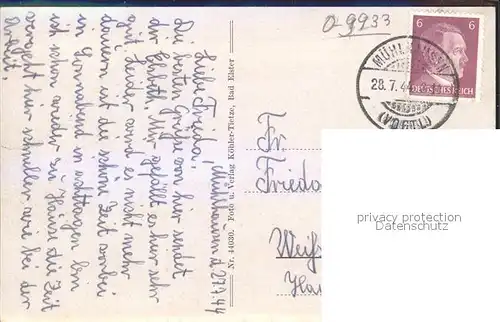 Mühlhausen, d. 27.7.44
Liebe Frieda!
Die besten Grüße von hier sendet
Elsbeth. Mir gefällt es hier sehr
gut. Leider wird es nicht mehr
dauern ist die schöne Zeit vorbei
in Sonnabend in achttagen bin
ich schon wieder zu Hause die Zeit
vergeht hier schneller wie bei der
Arbeit.
Nr. 44030. Foto u. Verlag Köhler-Tietze, Bad Elster
0-9933
6 6
DEUTSCHES REICH
MÜHLHAUSEN
28.7.44
(VOGTL)
Fr.
Frieda
privacy protection
Datenschutz